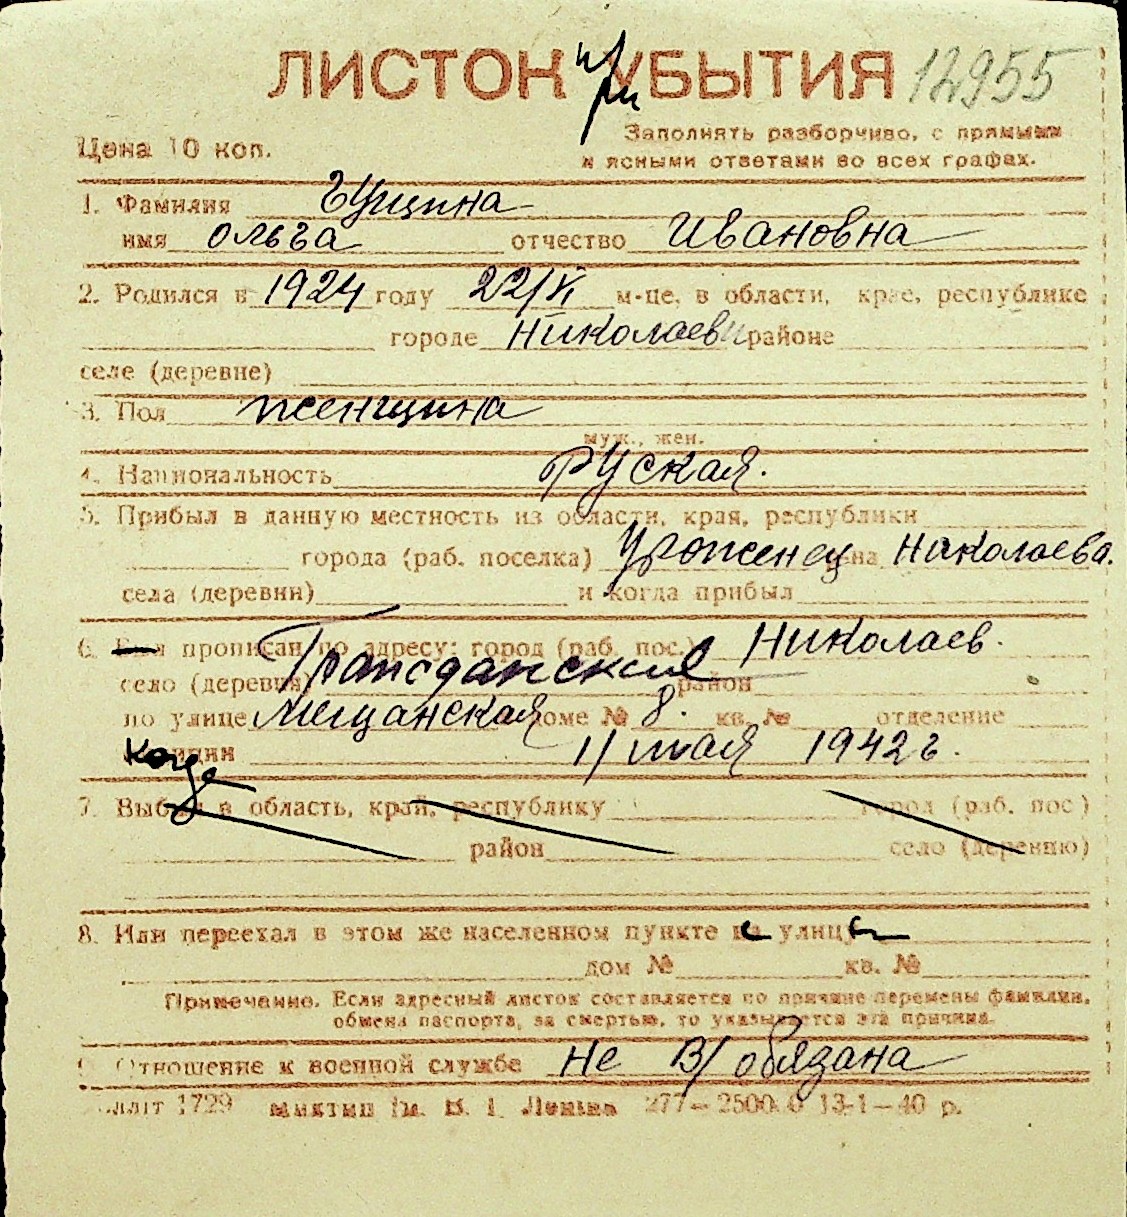 ЛИСТОК при УБЫТИЯ 12955
Цена 10 коп.
Заполнять разборчиво, с прямыми
и ясными ответами во всех графах.
1. Фамилия Гущина
имя Ольга отчество Ивановна
2. Родился в 1924 году 22/VI м-це, в области, крае, республике
городе Николаеви районе
селе (деревне)
3. Пол женщина
муж., жен.
4. Национальность Руская.
5. Прибыл в данную местность из области, края, республики
города (раб. поселка) Уроженец Николаева.
села (деревни) и когда прибыл
6. Был прописан по адресу: город (раб. пос.) Николаев.
село (деревня) Гражданский район
по улице Мещанская доме № 8. кв. № отделение
милиции когда 11 мая 1942 г.
7. Выбыл в область, край, республику город (раб. пос)
район село (деревню)
8. Или переехал в этом же населенном пункте с улицы
дом № кв. №
Примечание. Если адресный листок составляется по причине перемены фамилии,
обмена паспорта, за смертью, то указывается эта причина.
9. Отношение к военной службе не в/обязана
1729 Им. В. І. Леніна 277—2500.0 13-1—40 р.